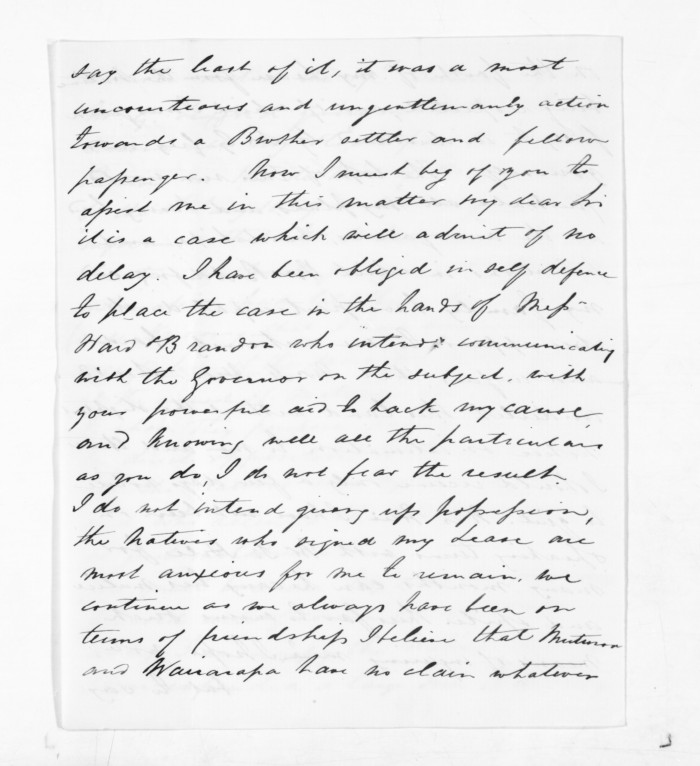 say the least of it, it was a most
uncourteous and ungentlemanly action
towards a Brother settler and fellow
passenger. Now I must beg of you to
assist me in this matter my dear Sir
it is a case which will admit of no
delay. I have been obliged in self defence
to place the case in the hands of Messrs
& Brandon who intend communicating
with the Governor on the subject, with
your powerful aid to back my cause,
and knowing well all the particulars
as you do, I do not fear the result.
I do not intend giving up possession,
the Natives who signed my Lease are
most anxious for me to remain, we
continue as we always have been on
terms of friendship, I believe that
and Wairarapa have no claim whatever